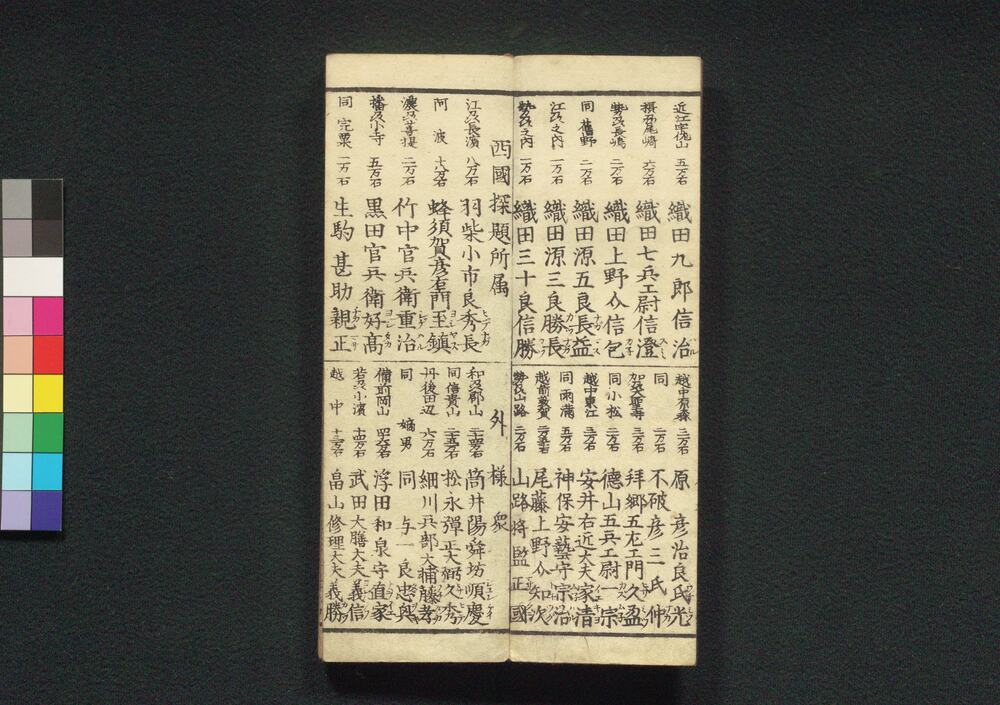 近江安土山 五万石 織田九郎信治
摂尼崎 六万石 織田七兵衛尉信澄
勢及長嶋 二万石 織田上野介信包
同 舊野 二万石 織田源五良長益
江及之内 一万石 織田源三良勝長
勢及之内 一万石 織田三十良信勝
越中有森 三万石 原 彦治良氏光
同 二万石 不破彦三氏仲
加及大聖寺 三万石 拜郷五左エ門久盈
同小松 二万石 德山五兵エ尉一宗
越中東江 三万石 安井右近大夫家清
同雨滿 五万石 神保安藝守宗治
越前敦賀 尾藤上野介知次
勢及山路 二万石 山路将監正國
西國探題所属
江及長濱 八万石 羽柴小市良秀長 ヒデナガ
阿波 十八万石 蜂須賀彦右衛門至鎮 ヨシヤス
濃及菩提 二万石 竹中官兵衛重治 シゲハル
播及小寺 五万石 黒田官兵衛好髙 ヨシタカ
同 宍粟 一万石 生駒甚助親正
外様衆
和及郡山 二十四万石 筒井陽舜坊順慶
同信貴山 二十五万石 松永彈正大弼久秀
丹後田辺 六万石 細川兵部大輔藤孝
同 嫡男 同 与一良忠興
備前岡山 四十六万石 浮田和泉守直家
若及小濱 十四万石 武田大膳大夫義信
越中 十三万石 畠山修理大夫義勝